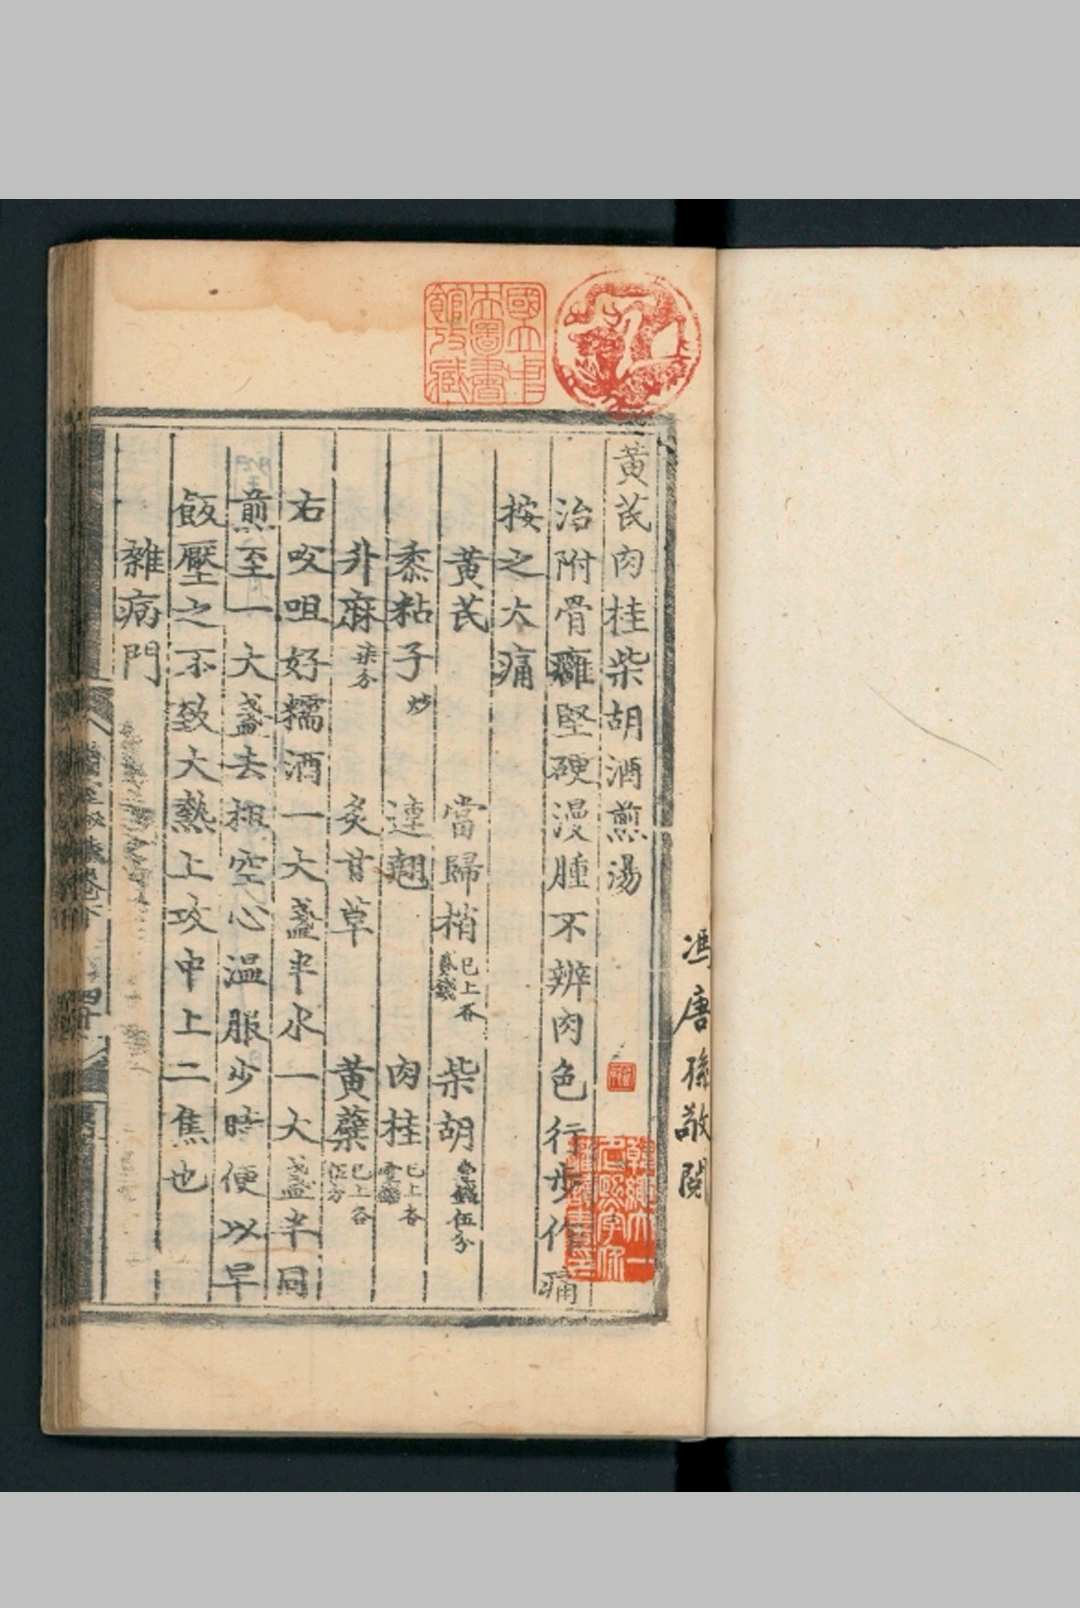 黄芪肉桂柴胡酒煎湯
治附骨癰堅硬漫腫不辨肉色行步作痛
按之大痛
黄芪 當歸梢已上各貳錢 柴胡壹錢伍分
黍粘子炒 連翹 肉桂已上各壹錢
升麻柒分 炙甘草 黄蘗已上各伍分
右㕮咀好糯酒一大盞半水一大盞半同
煎至一大盞去柤空心温服少時便以早
飯壓之不致大熱上攻中上二焦也
雜病門
馮唐孫敬閱
國立中央圖書館收藏